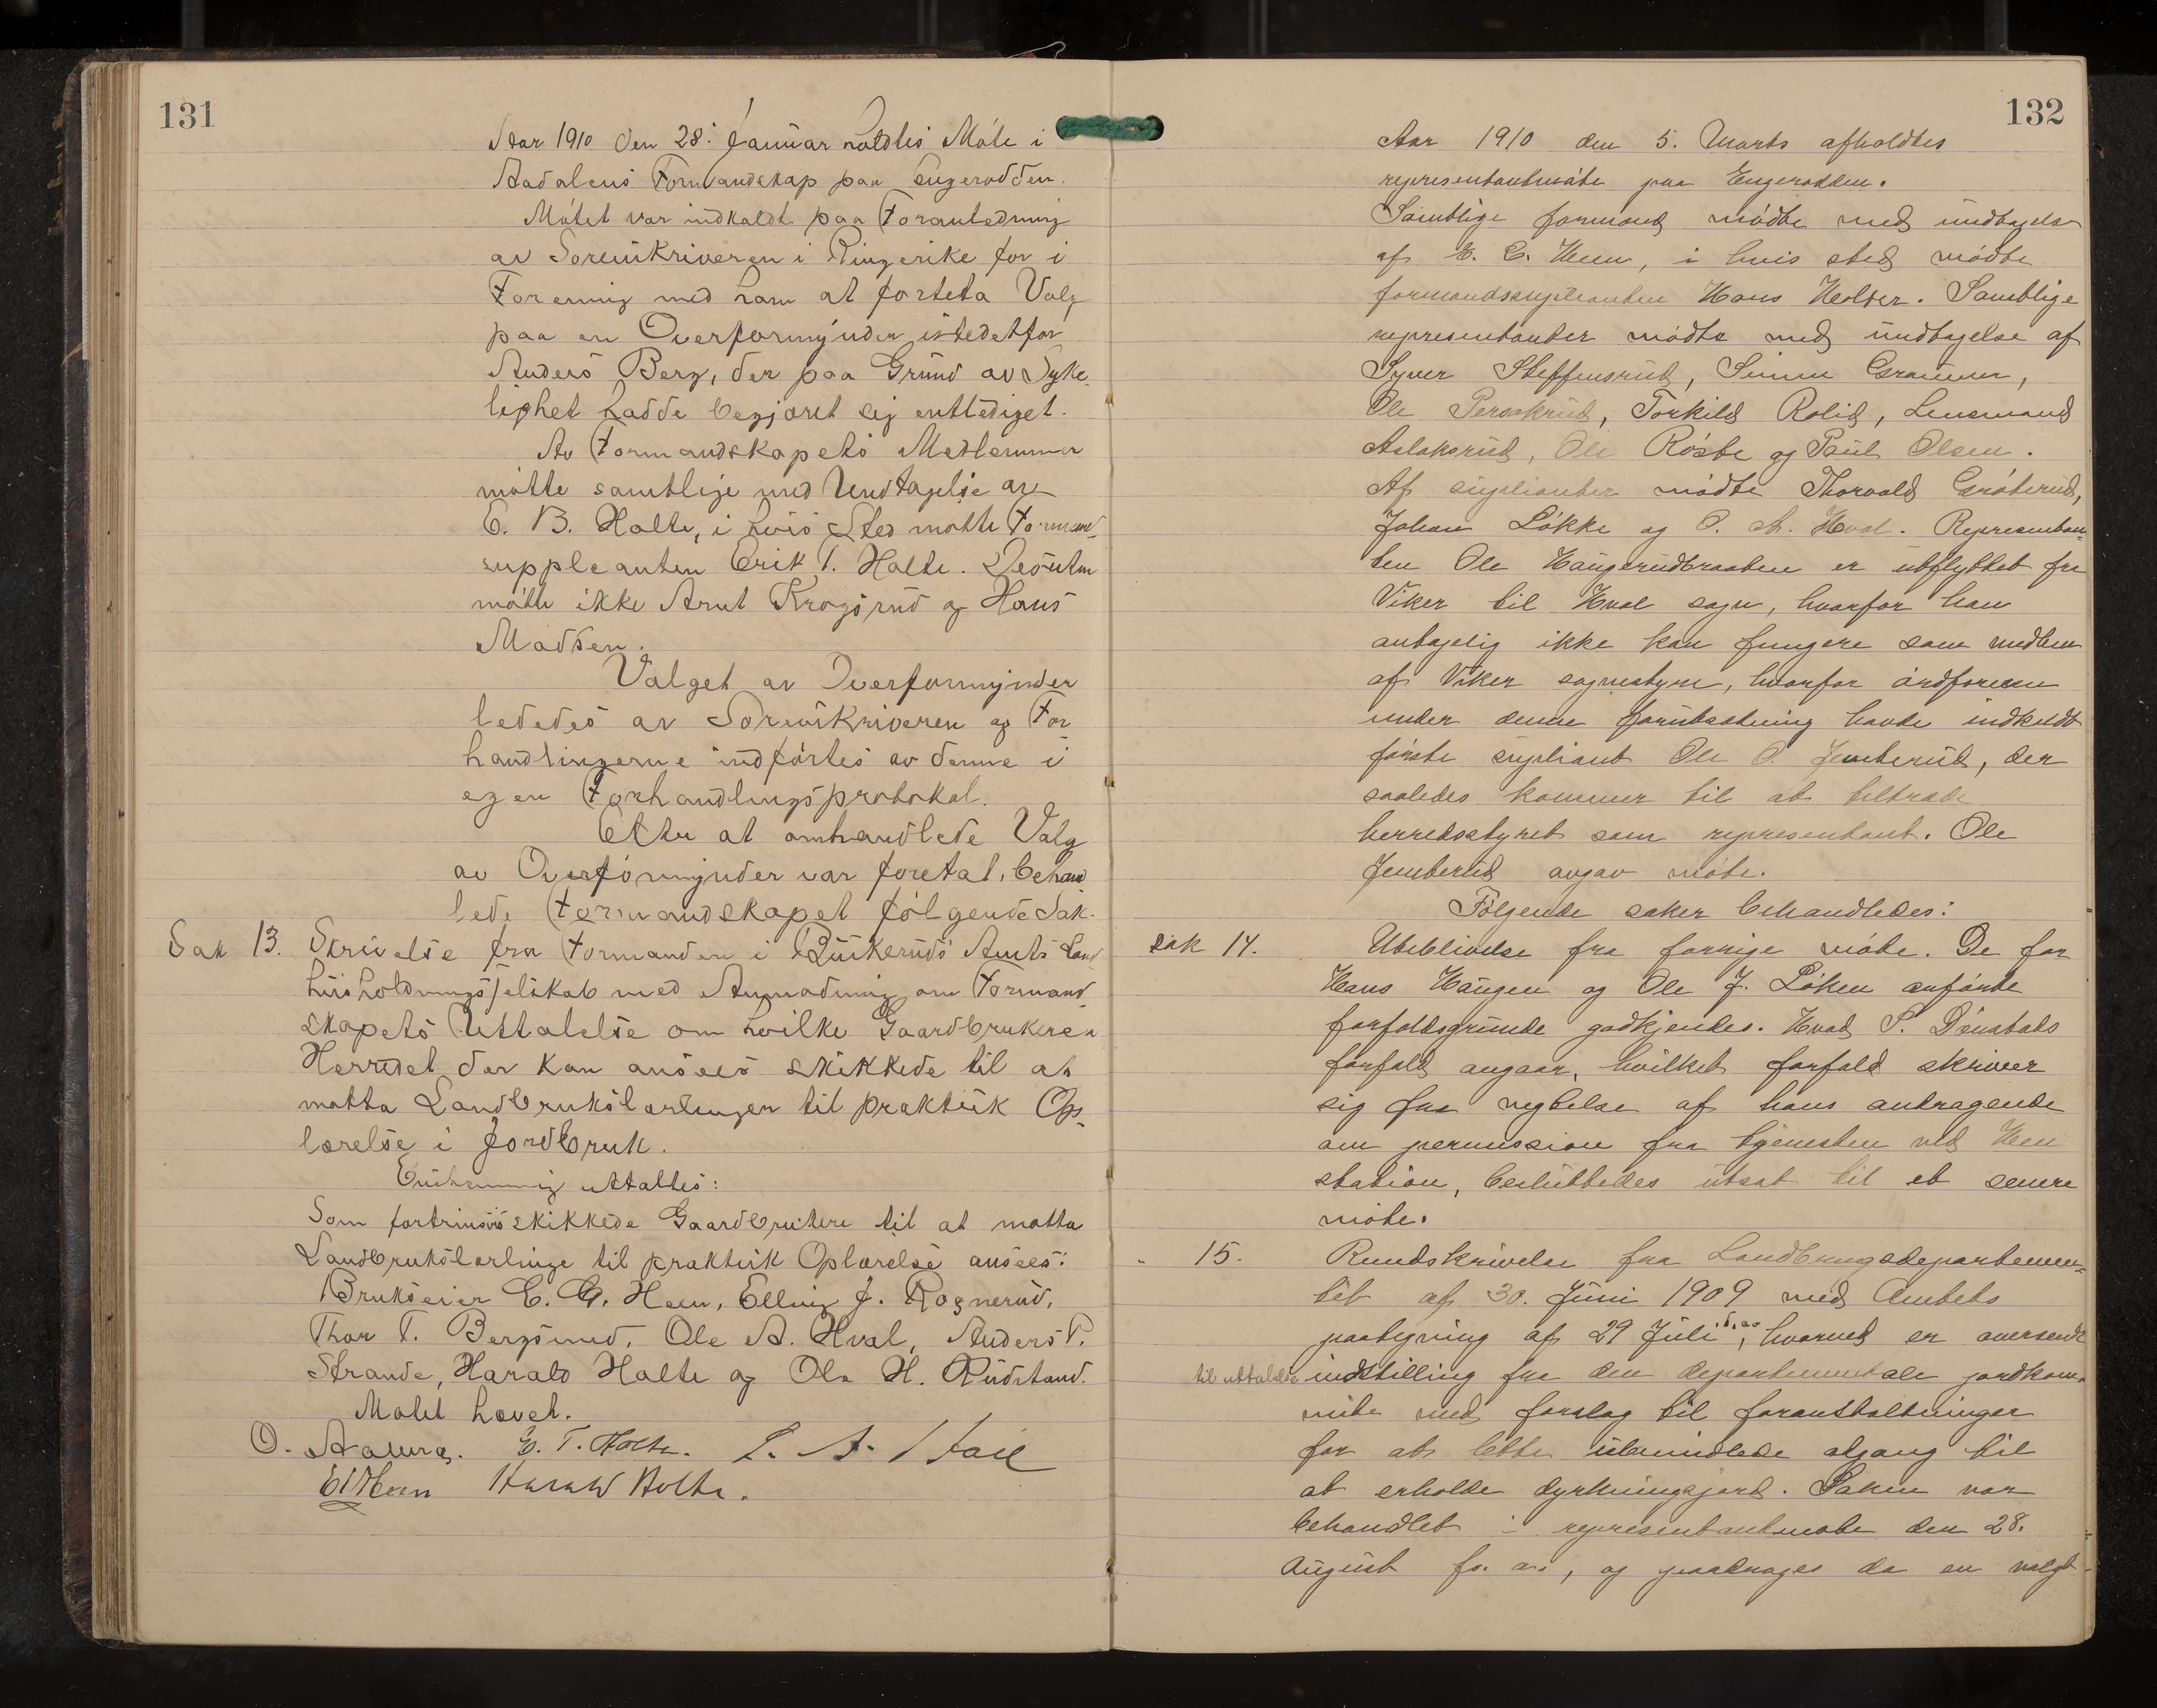 131
Aar 1910 den 28. Januar holdtes Møte i
Aadalens Formandskap paa Engerodden.
Møtet var indkaldt paa Foranledning
av Sorenskriveren i Ringerike for i
Forening med ham at foreta Valg
paa en Overformynder istedetfor
Anders Berg, der paa Grund av Syke-
lighet hadde begjæret sig entlediget.
Av Formandskapets Medlemmer
møtte samtlige med Undtagelse av
E. B. Holte, i hvis Sted møtte Formand-
suppleanten Erik T. Holte. Desuten
møtte ikke Arnt Krogsrud og Hans
Madsen.
Valget av Overformynder
lededes av Sorenskriveren og For
handlingerne indførtes av denne i
egen Forhandlingsprotokol.
Etter at omhandlede Valg
av Overformynder var foretat, behand
lede Formandskapet følgende Sak.
Sak 13. Skrivelse fra Formanden i Buskeruds Amts Land
husholdningsselskab med Anmodning om Formand-
skapets Uttalelse om hvilke Gaardbrukere i
Herredet der kan ansees skikkede til at
motta Landbrukslærlinger til praktisk Op-
lærelse i Jordbruk.
Enstemmig uttaltes:
Som fortrinsvis skikkede Gaardbrukere til at motta
Landbrukslærlinge til praktisk Oplærelse ansees:
Brukseier E. G. Heen, Elling J. Rognerud,
Thor T. Bergsund, Ole A. Hval, Anders P.
Strande, Harald Holte og Ole H. Rudstand.
Møtet hævet.
O. E. T. Holte.
Harald Holte.
132
Aar 1910 den 5. Marts afholdtes
representantmøte paa Engerodden.
Samtlige formænd mødte med undtagelse
af E. G. Heen, i hvis sted mødte
formandssuplianten Hans Holter. Samtlige
representanter mødte med undtagelse af
Syver Steffensrud, Simen
Ole Torkild Rolid, Lensmand
Aslaksrud, Ole Røste og Paul Olsen.
Af suplianter mødte Thorvald Grøterud,
Johan Løkke og O. A. Hval. Representan-
ten Ole Haugerudbraaten er utflyttet fra
Viker til Hval sogn, hvorfor han
antagelig ikke kan fungere som medlem
af Viker sognestyre, hvorfor ordføreren
under denne forutsætning havde indkaldt
første supliant Ole O. Jemterud, der
saaledes kommer til at tiltræde
herredsstyret som representant. Ole
Jemterud avgav møte.
Følgende saker behandledes:
sak 14. Uteblivelse fra forrige møte. De for
Hans Haugen og Ole J. Løken anførte
forfaldsgrunde godkjendes. Hvad P.
forfald angaar, hvilket forfald skriver
sig fra negtelse af hans andragende
om permission fra tjenesten ved Hen
station, besluttedes utsat til et senere
møte.
" 15. Rundskrivelse fra Landbrugsdepartemen-
tet af 30. Juni 1909 med Amtets
paategning af 29 Juli s. aa., hvorved er oversendt
til uttalelse indstilling fra den departementale jordkom-
mite med forslag til foranstaltninger
for at lette ubemidlede adgang til
at erholde dyrkningsjord. Saken var
behandlet i representantmøte den 28.
August f. a., og paadroges da en valgt